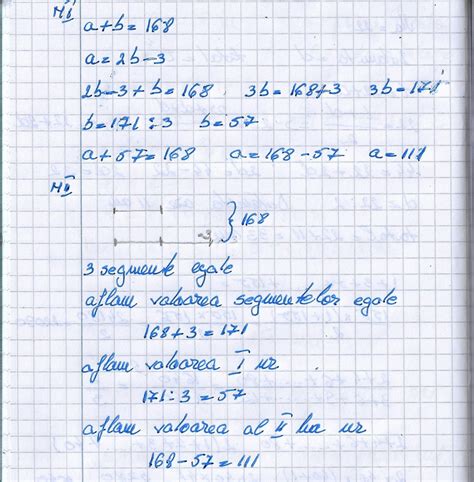 M I
a+b=168
a=2b-3
2b-3+b=168 3b=168+3 3b=171
b=171:3 b=57
a+57=168 a=168-57 a=111
M II
-3 } 168
3 segmente egale
aflam valoarea segmentelor egale
168+3=171
aflam valoarea I nr
171:3=57
aflam valoarea al II lea nr
168-57=111